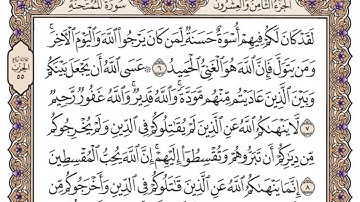 الجزء الثامن والعشرون سورة الممتحنة
لَقَدْ كَانَ لَكُمْ فِيهِمْ أُسْوَةٌ حَسَنَةٌ لِّمَن كَانَ يَرْجُوا۟ ٱللَّهَ وَٱلْيَوْمَ ٱلْـَٔاخِرَ ۚ
وَمَن يَتَوَلَّ فَإِنَّ ٱللَّهَ هُوَ ٱلْغَنِىُّ ٱلْحَمِيدُ ٦ ۞ عَسَى ٱللَّهُ أَن يَجْعَلَ بَيْنَكُمْ
وَبَيْنَ ٱلَّذِينَ عَادَيْتُم مِّنْهُم مَّوَدَّةً ۚ وَٱللَّهُ قَدِيرٌ ۚ وَٱللَّهُ غَفُورٌ رَّحِيمٌ
٧ لَّا يَنْهَىٰكُمُ ٱللَّهُ عَنِ ٱلَّذِينَ لَمْ يُقَـٰتِلُوكُمْ فِى ٱلدِّينِ وَلَمْ يُخْرِجُوكُم
مِّن دِيَـٰرِكُمْ أَن تَبَرُّوهُمْ وَتُقْسِطُوٓا۟ إِلَيْهِمْ ۚ إِنَّ ٱللَّهَ يُحِبُّ ٱلْمُقْسِطِينَ
٨ إِنَّمَا يَنْهَىٰكُمُ ٱللَّهُ عَنِ ٱلَّذِينَ قَـٰتَلُوكُمْ فِى ٱلدِّينِ وَأَخْرَجُوكُم مِّن
الحزب
٥٥